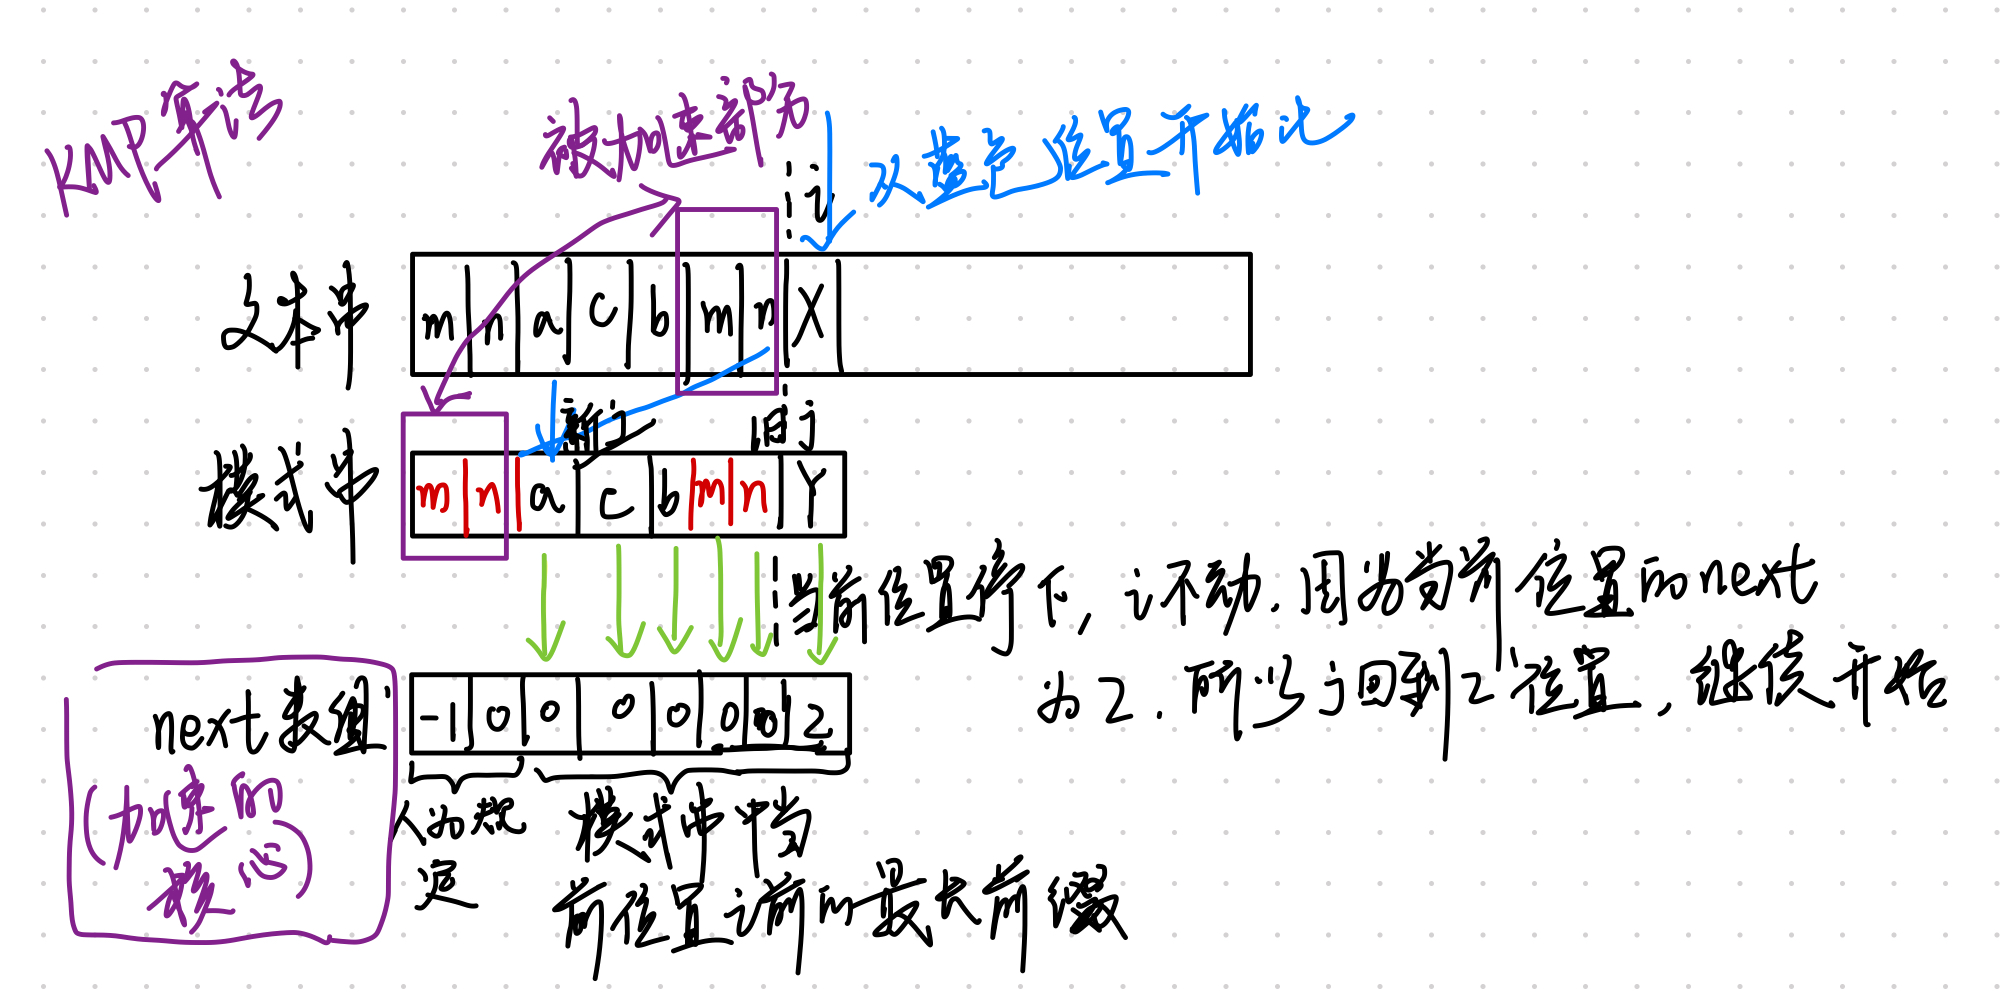 KMP算法
被加速部分
从蓝色位置开始比
i
文本串 m n a c b m n X
新j 旧j
模式串 m n a c b m n Y
当前位置停下, i不动. 因为当前位置的next
为2. 所以j回到2位置, 继续开始
next数组 -1 0 0 0 0 0 0 2
(加速的
核心)
人为规
定
模式串中当
前位置之前的最大前缀